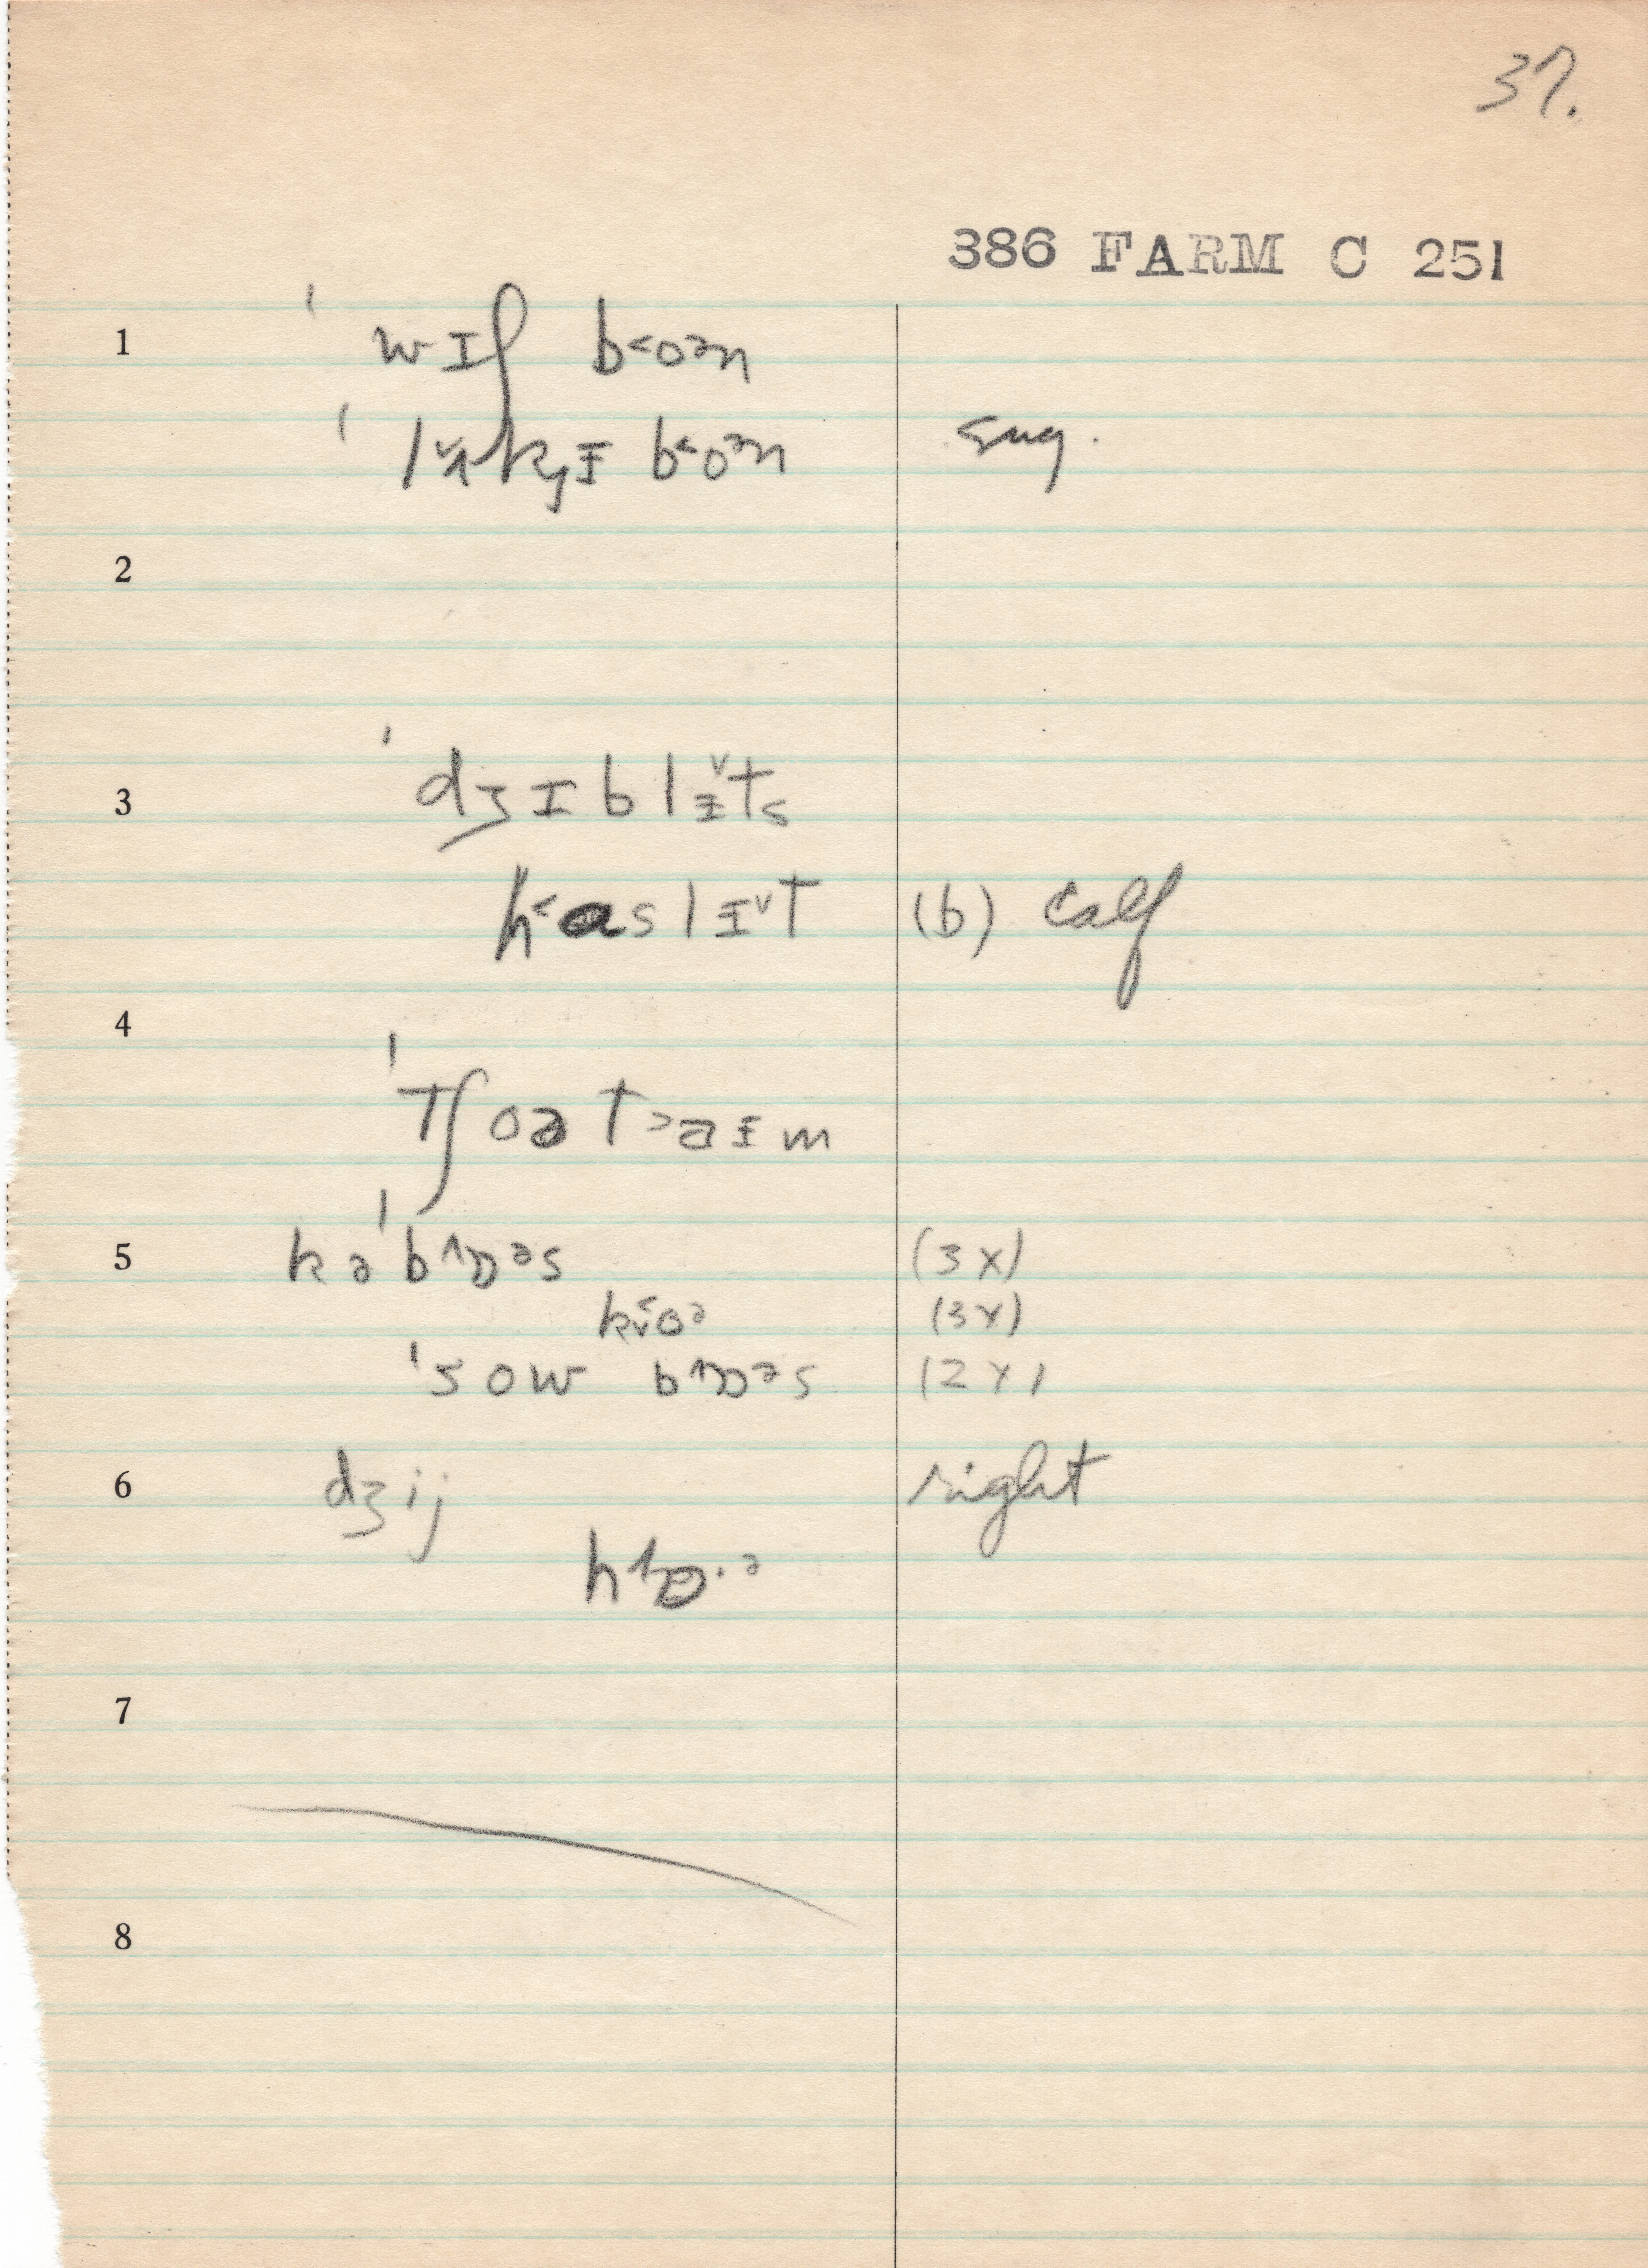 37.
386 FARM C 251
1 ˈwɪʃ b˂oᵊn
ˈlʌ̌kɪ̵ b˂oᵊn sug.
2
3 ˈdʒɪblɪ̵ˇts
h˂aslɪ̵ˇt (b) calf
4
ˈtʃoə t˃aɪ̵m
5 kəˈb^ɒᵊs (3x)
k˂oᵊ (3x)
ˈsow b^ɒᵊs (2x)
6 dʒij right
h^ɒ·ᵊ
7
8